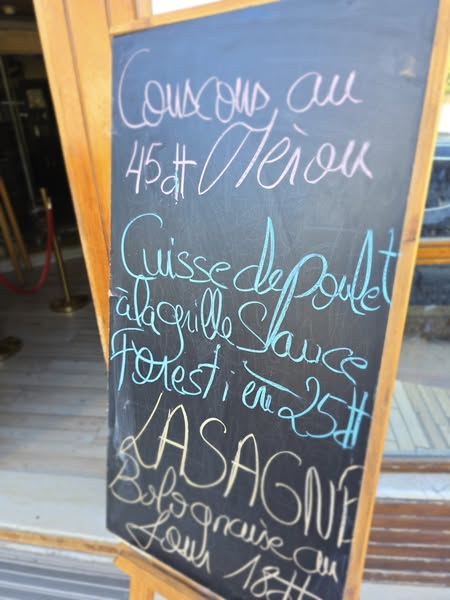 Couscous au
45dt Mérou
Cuisse de Poulet
à la grille Sauce
Forestière 25dt
LASAGNE
Bolognaise au
four 18dt